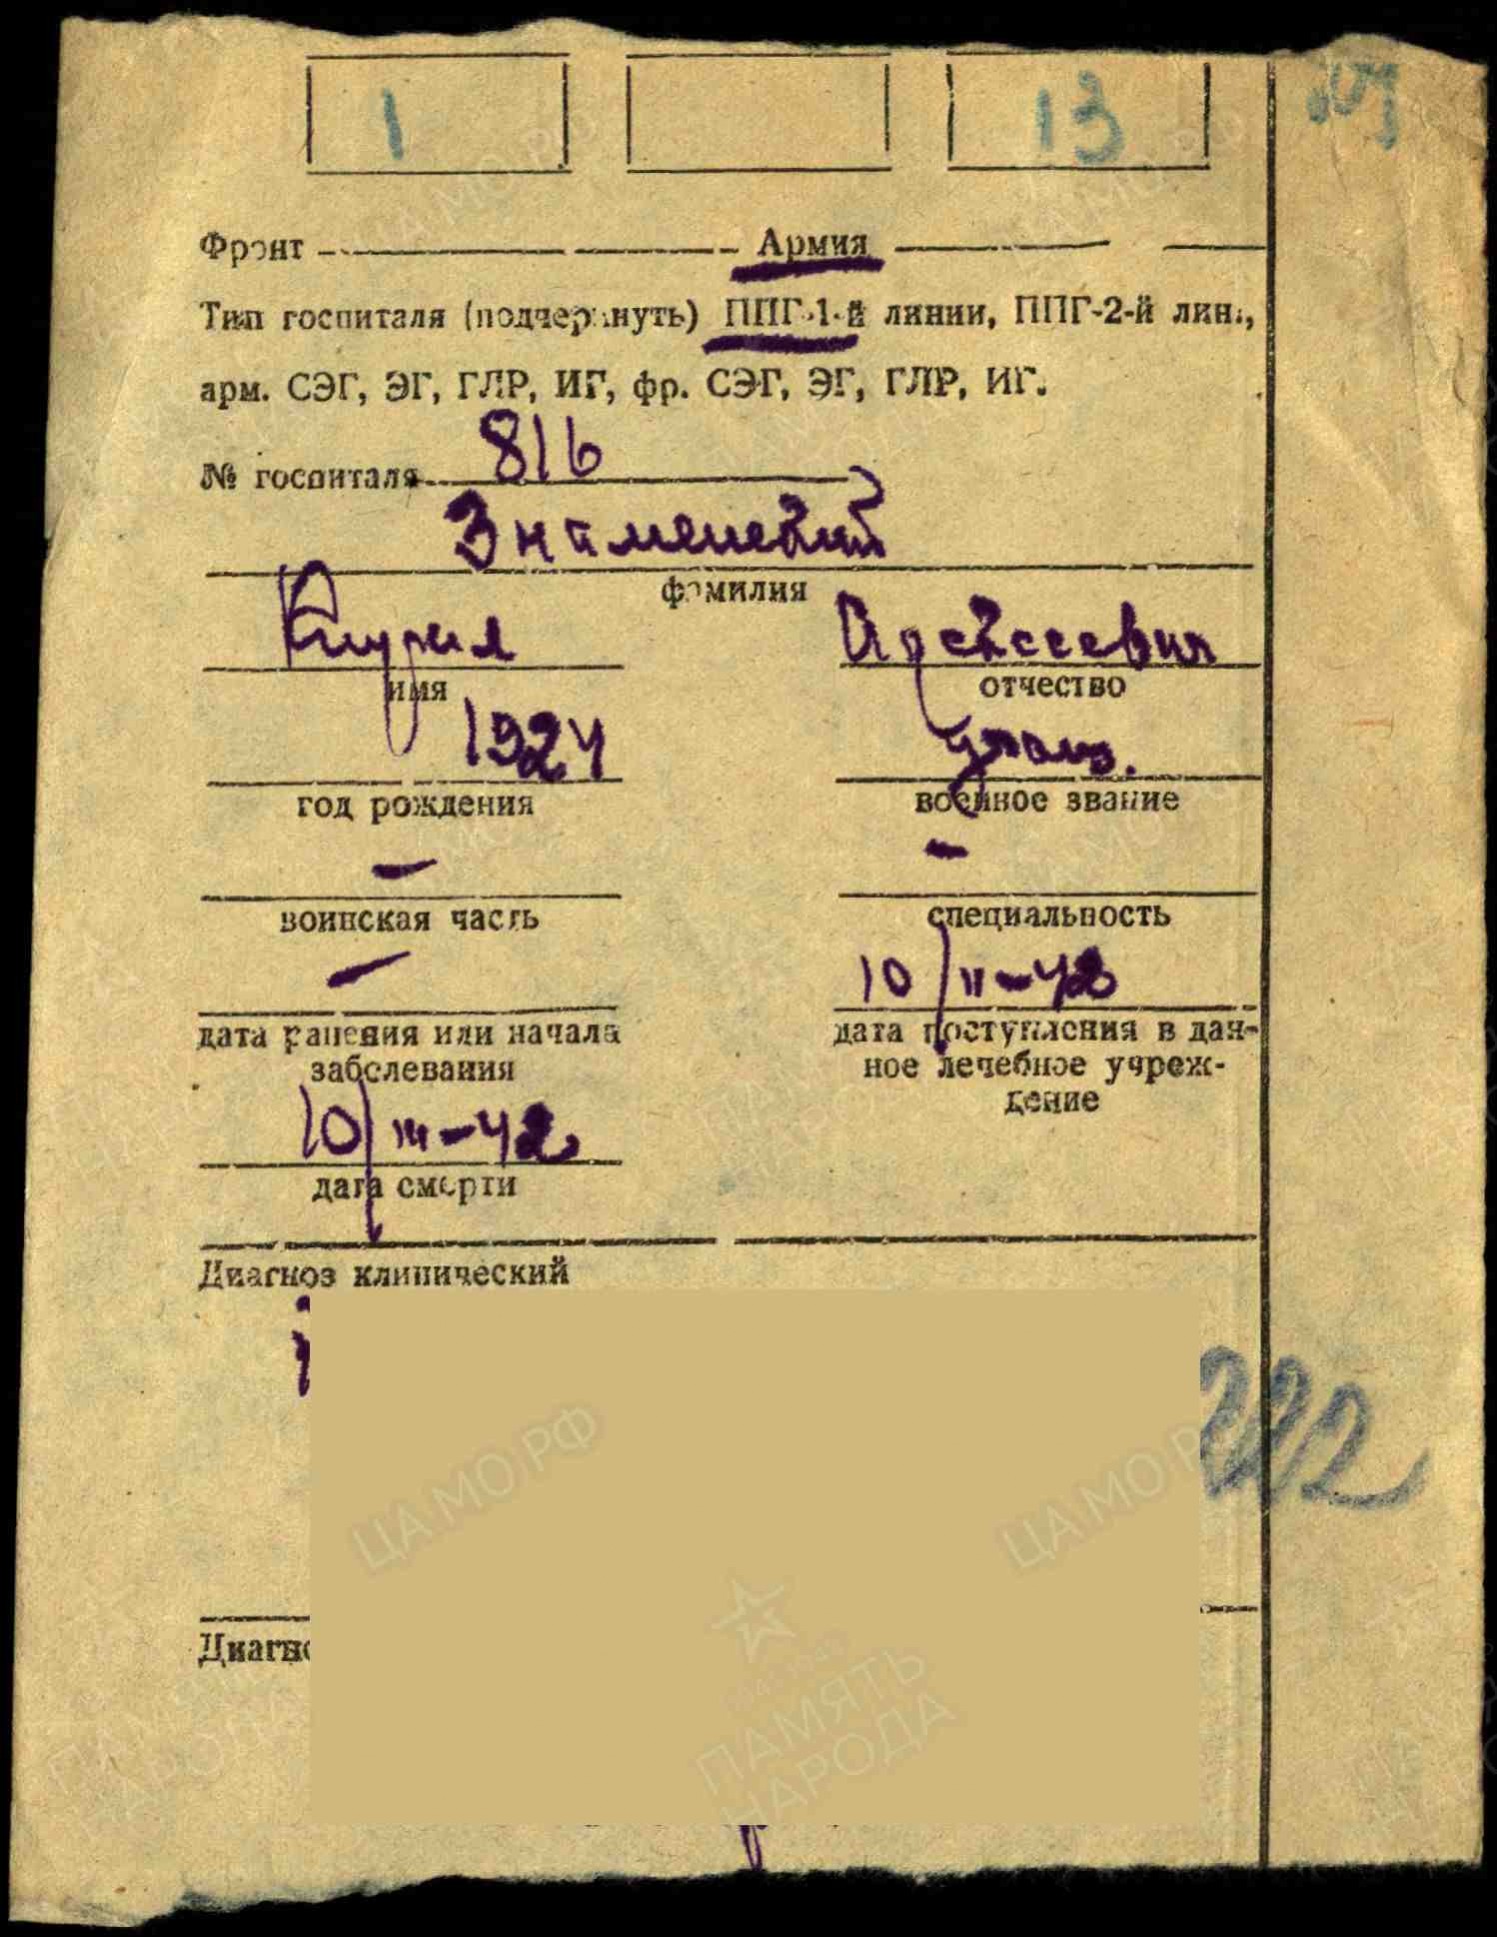 1 13
Фронт Армия
Тип госпиталя (подчеркнуть) ППГ-1-й линии, ППГ-2-й лин.,
арм. СЭГ, ЭГ, ГЛР, ИГ, фр. СЭГ, ЭГ, ГЛР, ИГ.
№ госпиталя 816
Знаменский
фамилия
Кирил Алексеевич
имя отчество
1924
год рождения военное звание
— —
воинская часть специальность
— 10/II-42
дата ранения или начала дата поступления в дан-
заболевания ное лечебное учреж-
дение
10/III-42
дата смерти
Диагноз клинический
222
Диагно
ЦАМО.РФ ЦАМО.РФ
ПАМЯТЬ
НАРОДА